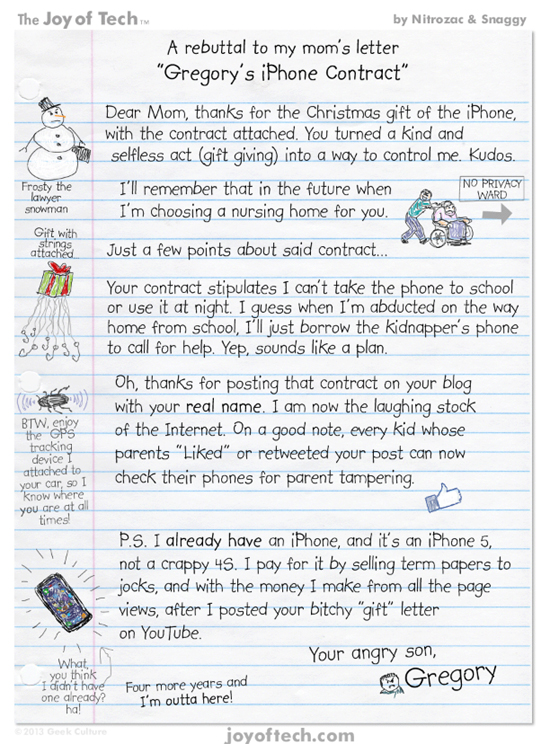 The Joy of Tech™
by Nitrozac & Snaggy
A rebuttal to my mom's letter
"Gregory's iPhone Contract"
Dear Mom, thanks for the Christmas gift of the iPhone,
with the contract attached. You turned a kind and
selfless act (gift giving) into a way to control me. Kudos.
Frosty the
lawyer
snowman
I'll remember that in the future when
I'm choosing a nursing home for you.
NO PRIVACY
WARD
Gift with
strings
attached
Just a few points about said contract...
Your contract stipulates I can't take the phone to school
or use it at night. I guess when I'm abducted on the way
home from school, I'll just borrow the kidnapper's phone
to call for help. Yep, sounds like a plan.
Oh, thanks for posting that contract on your blog
with your real name. I am now the laughing stock
of the Internet. On a good note, every kid whose
parents "Liked" or retweeted your post can now
check their phones for parent tampering.
BTW, enjoy
the GPS
tracking
device I
attached to
your car, so I
know where
you are at all
times!
P.S. I already have an iPhone, and it's an iPhone 5,
not a crappy 4S. I pay for it by selling term papers to
jocks, and with the money I make from all the page
views, after I posted your bitchy "gift" letter
on YouTube.
What,
you think
I didn't have
one already?
ha!
Your angry son,
Gregory
Four more years and
I'm outta here!
©2013 Geek Culture
joyoftech.com